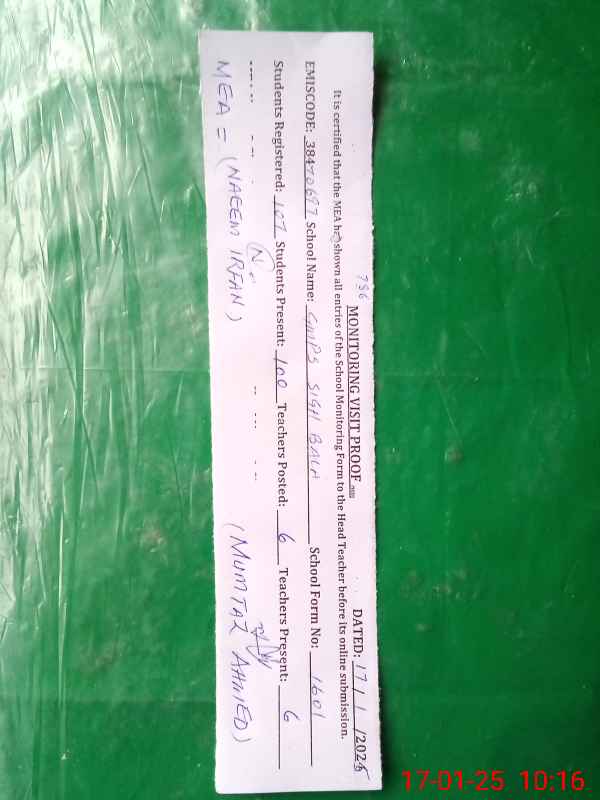 786
MONITORING VISIT PROOF DATED: 17/1/2025
It is certified that the MEA has shown all entries of the School Monitoring Form to the Head Teacher before its online submission.
EMISCODE: 38470697 School Name: GMPS SIGH BALA School Form No: 1601
Students Registered: 107 Students Present: 100 Teachers Posted: 6 Teachers Present: 6
MEA = (NAEEM IRFAN) (MUMTAZ AHMED)
17-01-25 10:16